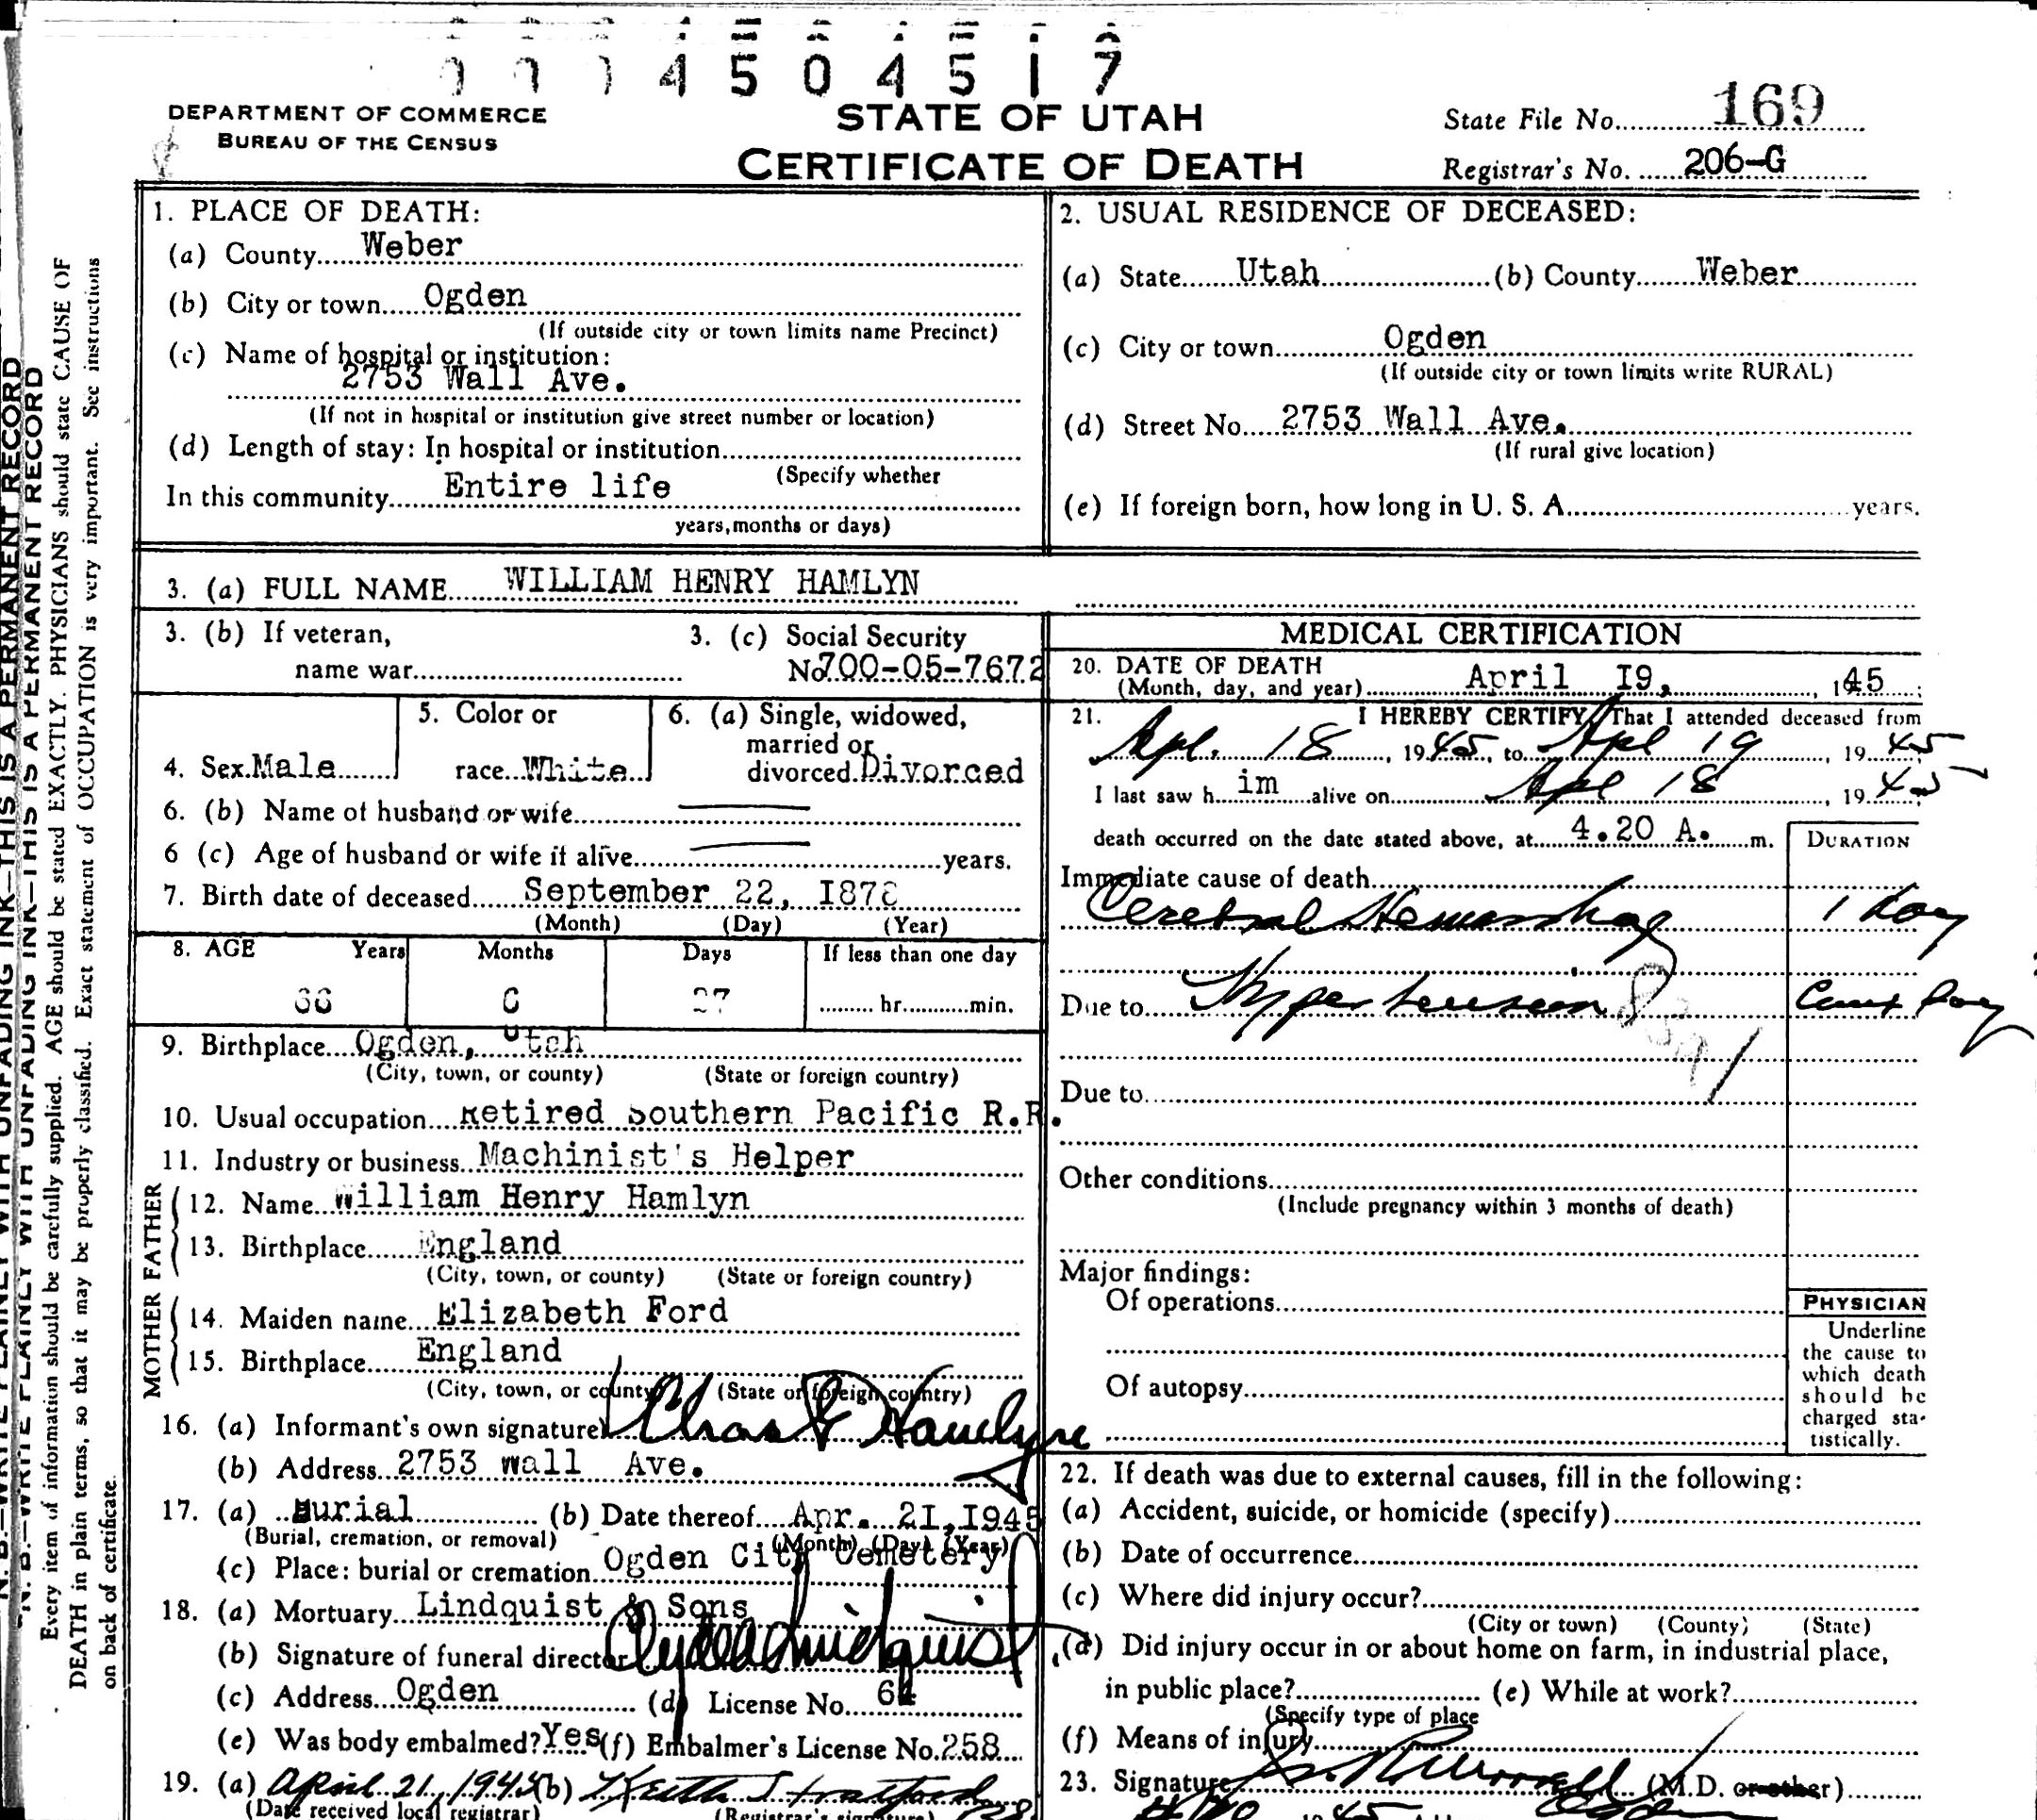 4 5 0 4 5 1 7
DEPARTMENT OF COMMERCE
BUREAU OF THE CENSUS
STATE OF UTAH
CERTIFICATE OF DEATH
State File No. 169
Registrar's No. 206-G
1. PLACE OF DEATH:
(a) County Weber
(b) City or town Ogden
(If outside city or town limits name Precinct)
(c) Name of hospital or institution:
2753 Wall Ave.
(If not in hospital or institution give street number or location)
(d) Length of stay: In hospital or institution
(Specify whether
In this community Entire life
years, months or days)
2. USUAL RESIDENCE OF DECEASED:
(a) State Utah (b) County Weber
(c) City or town Ogden
(If outside city or town limits write RURAL)
(d) Street No. 2753 Wall Ave.
(If rural give location)
(e) If foreign born, how long in U. S. A. years.
3. (a) FULL NAME WILLIAM HENRY HAMLYN
3. (b) If veteran,
name war
3. (c) Social Security
No. 700-05-7672
4. Sex Male
5. Color or
race White
6. (a) Single, widowed,
married or
divorced Divorced
6. (b) Name of husband or wife
6 (c) Age of husband or wife if alive years.
7. Birth date of deceased September 22, I878
(Month) (Day) (Year)
8. AGE Years Months Days If less than one day
66 6 27 hr. min.
9. Birthplace Ogden, Utah
(City, town, or county) (State or foreign country)
10. Usual occupation Retired Southern Pacific R.R.
11. Industry or business Machinist's Helper
FATHER
12. Name William Henry Hamlyn
13. Birthplace England
(City, town, or county) (State or foreign country)
MOTHER
14. Maiden name Elizabeth Ford
15. Birthplace England
(City, town, or county) (State or foreign country)
16. (a) Informant's own signature Chas Hamlyn
(b) Address 2753 Wall Ave.
17. (a) Burial (b) Date thereof Apr. 2I, I945
(Burial, cremation, or removal) (Month) (Day) (Year)
(c) Place: burial or cremation Ogden City Cemetery
18. (a) Mortuary Lindquist & Sons
(b) Signature of funeral director Clyde Lindquist
(c) Address Ogden (d) License No. 64
(e) Was body embalmed? Yes (f) Embalmer's License No. 258
19. (a) April 21, 1945 (b) Keith
(Date received local registrar) (Registrar's signature)
MEDICAL CERTIFICATION
20. DATE OF DEATH
(Month, day, and year) April I9, 1945
21. I HEREBY CERTIFY, That I attended deceased from
Apl. 18, 1945, to Apl 19, 1945
I last saw him alive on Apl 18, 1945
death occurred on the date stated above, at 4.20 A. m.
DURATION
Immediate cause of death
Cerebral Hemorrhag 1 day
Due to Hypertension
Due to
Other conditions
(Include pregnancy within 3 months of death)
Major findings:
Of operations
Of autopsy
PHYSICIAN
Underline
the cause to
which death
should be
charged sta-
tistically.
22. If death was due to external causes, fill in the following:
(a) Accident, suicide, or homicide (specify)
(b) Date of occurrence
(c) Where did injury occur?
(City or town) (County) (State)
(d) Did injury occur in or about home on farm, in industrial place,
in public place? (e) While at work?
(Specify type of place
(f) Means of injury
23. Signature (M.D. or other)
N. B.—WRITE PLAINLY WITH UNFADING INK—THIS IS A PERMANENT RECORD
N. B.—WRITE PLAINLY WITH UNFADING INK—THIS IS A PERMANENT RECORD
Every item of information should be carefully supplied. AGE should be stated EXACTLY. PHYSICIANS should state CAUSE OF
DEATH in plain terms, so that it may be properly classified. Exact statement of OCCUPATION is very important. See instructions
on back of certificate.